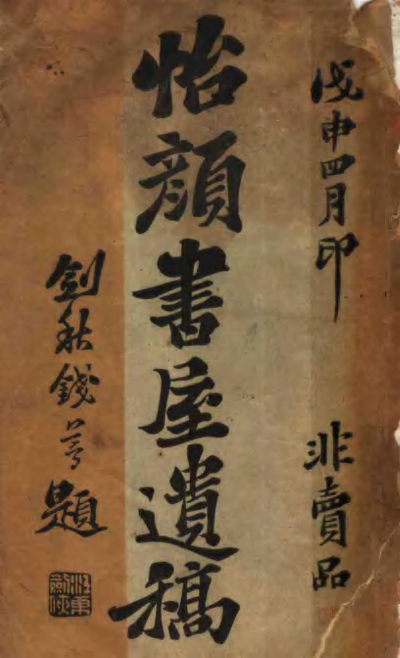 戊申四月印 非賣品
怡顔書屋遺稿
劍秋錢題